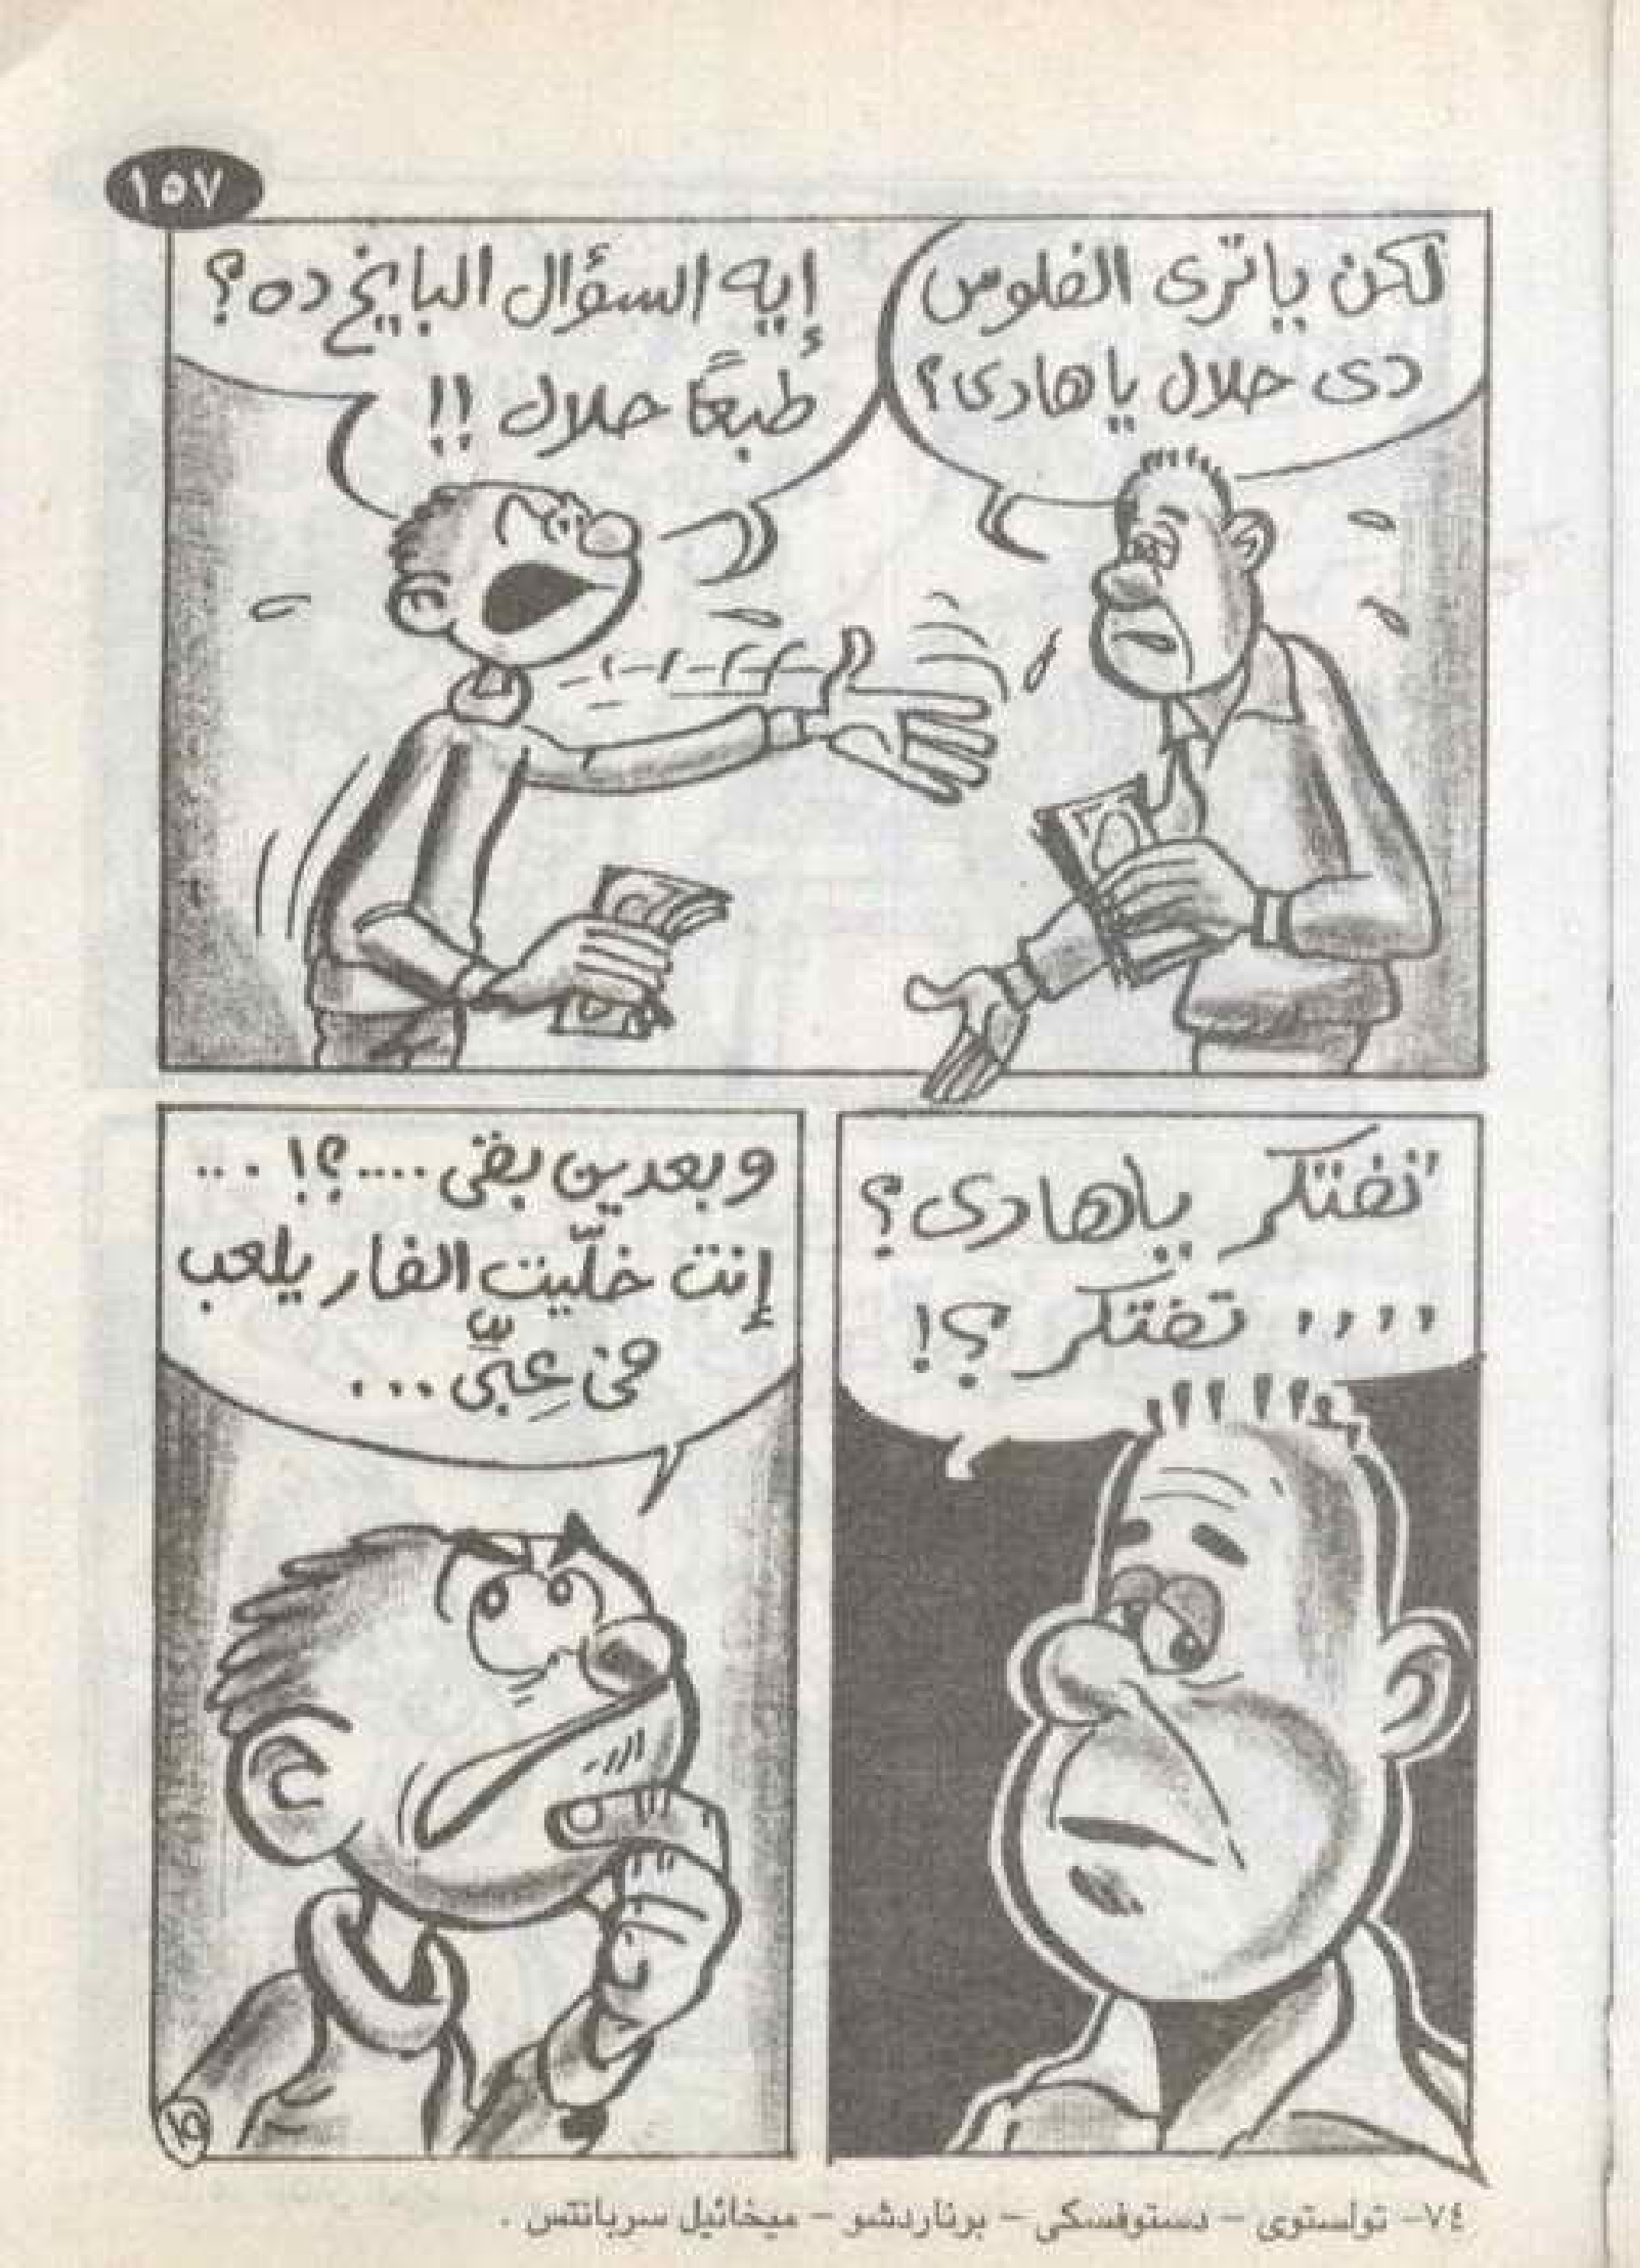 ١٥٧
لكن ياترى الفلوس
دى حلال ياهادى؟
إيه السؤال البايخ ده؟
طبعًا حلال !!
تفتكر ياهادى؟
,,,, تفتكر ؟!
وبعدين بقى ....؟! ...
إنت خلّيت الفار يلعب
فى عِبّى ...
١٥
٧٤- تولستوى - دستوفسكى - برناردشو - ميخائيل سربانتس .